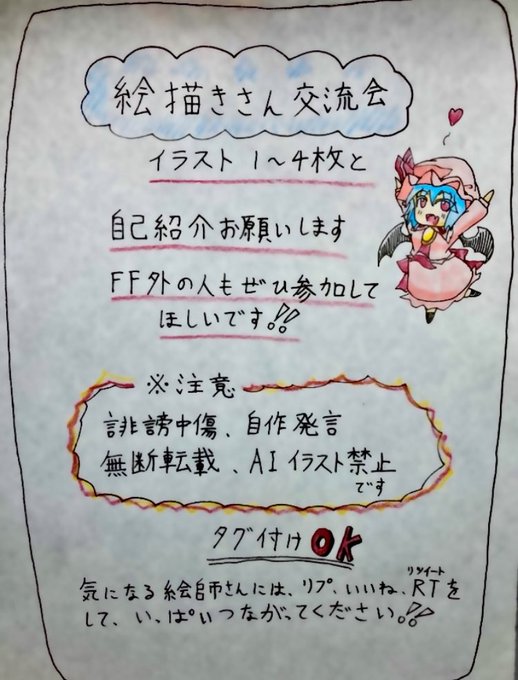 絵描きさん交流会
イラスト 1〜4枚と
自己紹介お願いします
FF外の人もぜひ参加して
ほしいです!!
※注意
誹謗中傷、自作発言
無断転載、AIイラスト禁止
です
タグ付けOK
リツイート
気になる絵師さんには、リプ、いいね、RTを
して、いっぱいつながってください!!